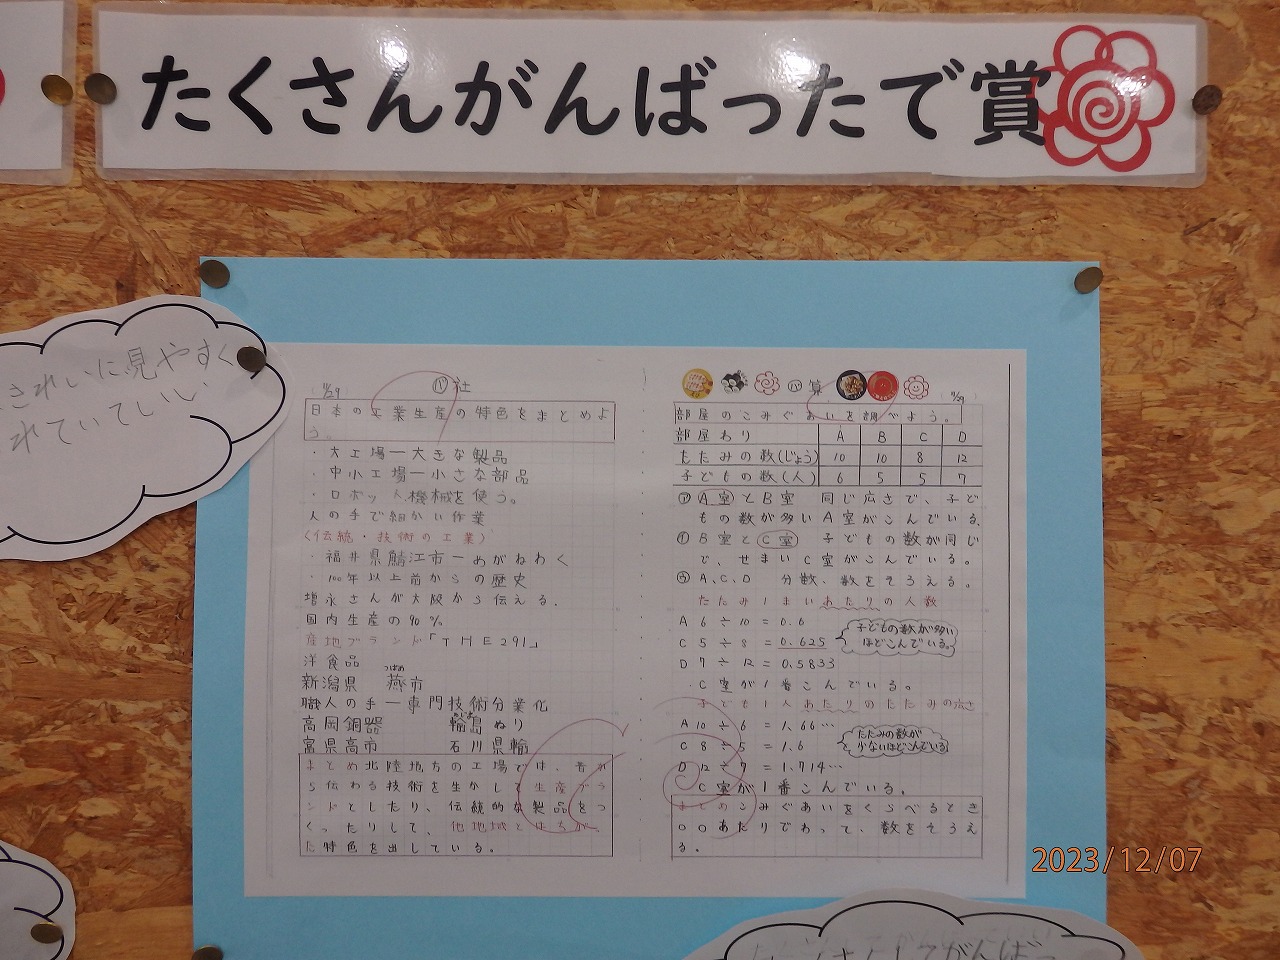 たくさんがんばったで賞
きれいに見やすく
れていていい
11/29
社
日本の工業生産の特色をまとめよ
う。
・大工場ー大きな製品
・中小工場ー小さな部品
・ロボット、機械を使う。
人の手で細かい作業
〈伝統・技術の工業〉
・福井県鯖江市ーめがねわく
・100年以上前からの歴史
増永さんが大阪から伝える。
国内生産の90%
産地ブランド「THE291」
洋食品
新潟県 燕市
つばめ
職人の手ー専門技術分業化
高岡銅器 輪島ぬり
わじま
富県高市 石川県輪
まとめ北陸地ちの工場では、昔か
ら伝わる技術を生かして生産ブラ
ンドとしたり、伝統的な製品をつ
くったりして、他地域とはちが
た特色を出している。
算
11/29
部屋のこみぐあいを調べよう。
部屋わり A B C D
たたみの数(じょう) 10 10 8 12
子どもの数(人) 6 5 5 7
㋐ A室とB室 同じ広さで、子ど
もの数が多いA室がこんでいる。
㋑ B室とC室 子どもの数が同じ
で、せまいC室がこんでいる。
㋒ A、C、D 分数、数をそろえる。
たたみ1まいあたりの人数
A 6÷10=0.6
C 5÷8=0.625
D 7÷12=0.5833
子どもの数が多い
ほどこんでいる。
C室が1番こんでいる。
子ども1人あたりのたたみの広さ
A 10÷6=1.66…
C 8÷5=1.6
D 12÷7=1.714…
たたみの数が
少ないほどこんでいる
C室が1番こんでいる。
まとめこみぐあいをくらべるとき
○○あたりでわって、数をそろえ
る。
2023/12/07